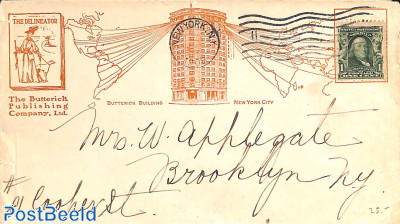 THE DELINEATOR
The Butterick
Publishing
Company, Ltd.
BUTTERICK BUILDING
NEW YORK CITY
NEW YORK, N.Y.
Mrs. W. Applegate
Brooklyn Ny.
St.
25.-
PostBeeld